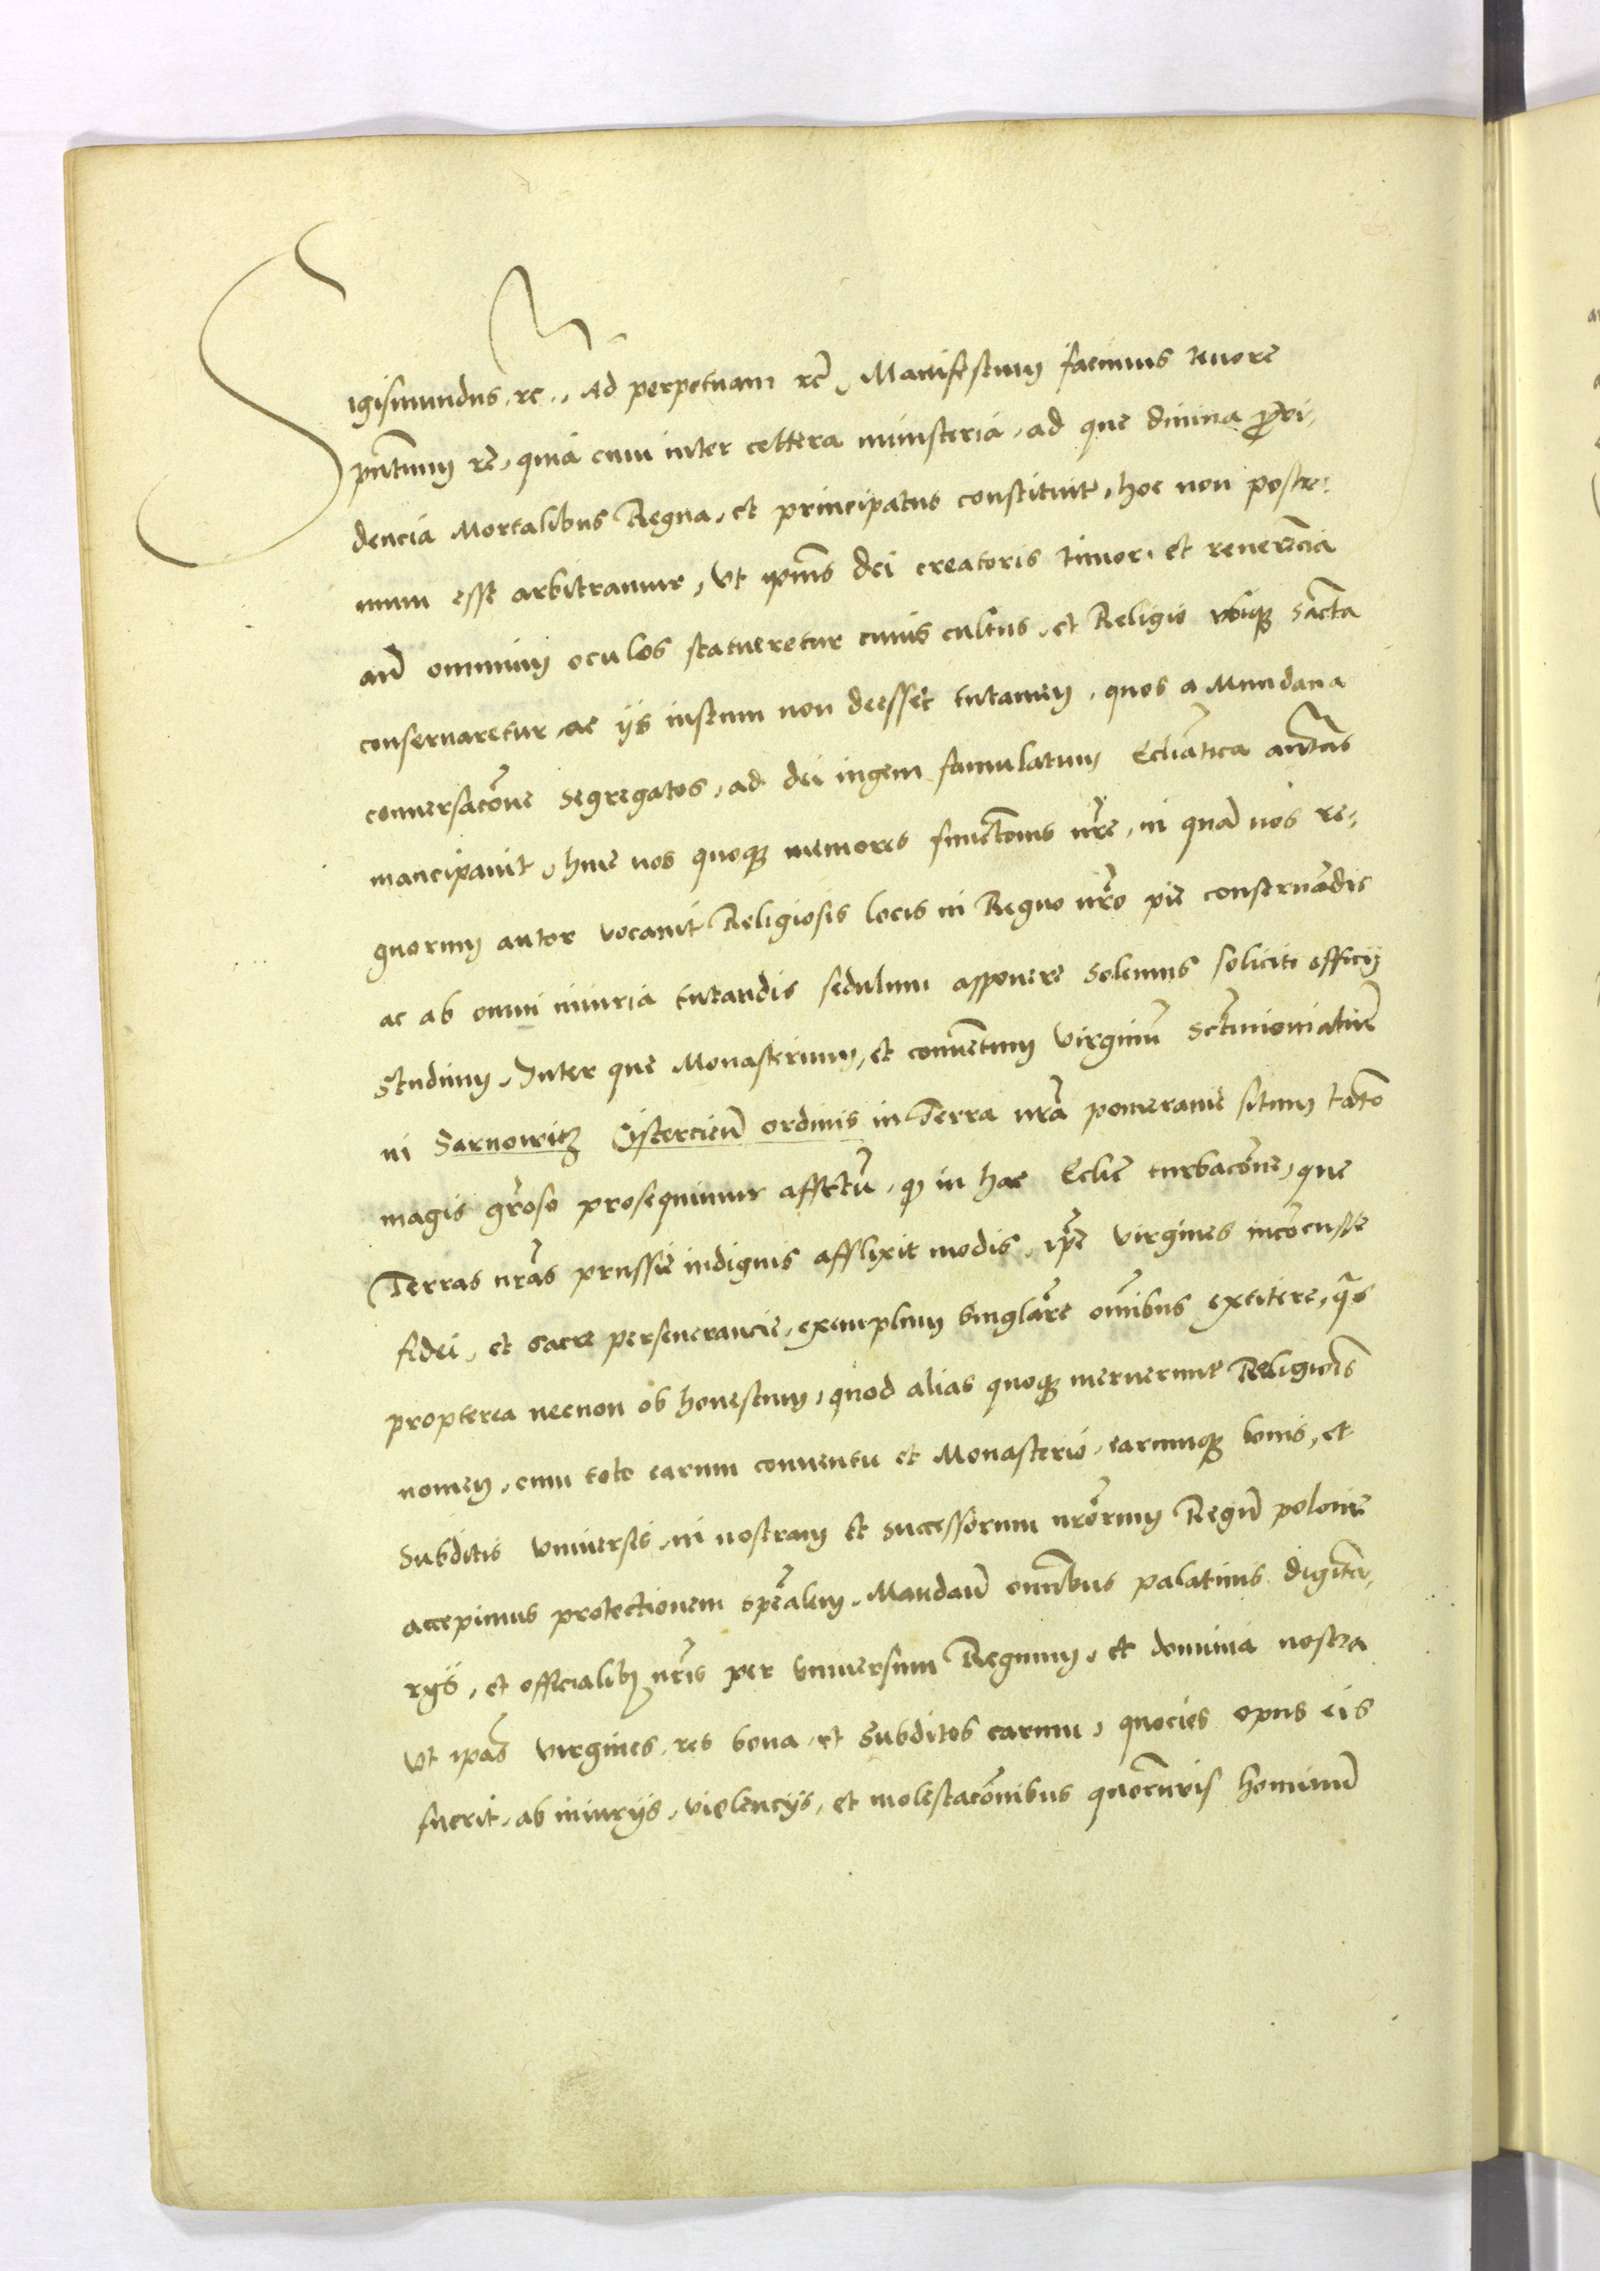 Sigismundus, rc., Ad perpetuam rē, Manifestum facimus tenore
pñtium rē, quia cum inter cettera ministeria, ad que diuina ꝓui-
dencia Mortalibus Regna, et principatus constituit, hoc non postre-
mum esse arbitramur, vt ipius dei creatoris timor, et reuerēcia
an̄ omnium oculos statueretur cuius cultus, et Religio vbiqꝫ sācta
conseruaretur, ac ijs iustum non deesset tutamen, quos a Mundana
conuersacōne segregatos, ad dei iugem famulatum Ecliāstica auctas
mancipauit, hinc nos quoqꝫ memores functionis nr̄e, in quā nos re-
gnorum autor vocauit Religiosis locis in Regno nr̄o pie conseruādis
ac ab omni iniuria tutandis sedulum apponere solemus soliciti officij
studium, Inter que Monasterium, et conuentum virginū Sctīmonialiū
in Sarnowitz Cistercien̄ ordinis in Terra nrā pomeranie situm tāto
magis grōso prosequimur affectu, qꝫ in hac Eclie turbacōne, que
Terras nrās prussie indignis afflixit modis, ipē virgines incōcusse
fidei, et sacre perseuerancie, exemplum singlāre om̄ibus extitere, qās
propterea necnon ob honestum, quod alias quoqꝫ meruerunt Religiōis
nomen, cum toto earum conuentu et Monasterio, earumqꝫ bonis, et
subditis vniuersis, in nostram et successorum nrōrum Regū polonie
accepimus protectionem spēalem, Mandan̄ omnibus palatinis dignita-
rijs, et officialibꝫ nrīs per vniuersum Regnum, et dominia nostra
vt ipās virgines, res bona, et subditos earum, quocies opus eis
fuerit, ab iniurijs, violencijs, et molestacōnibus quorūuis hominū